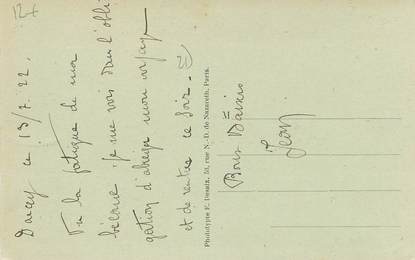 Dancy ce 13/7.22.
Vu la fatigue de mon
bécane je me vois dans l'obli
gation d'abréger mon voyage
et de rentrer ce soir.
Phototypie F. Desaix, 53, rue N.-D. de Nazareth, Paris.
Bons Baisers
Jean